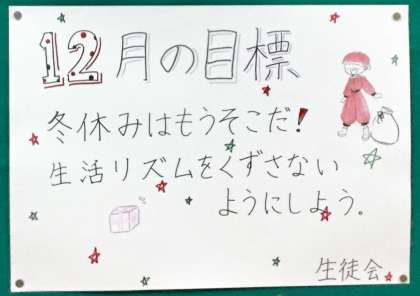 12月の目標
冬休みはもうそこだ!
生活リズムをくずさない
ようにしよう。
生徒会